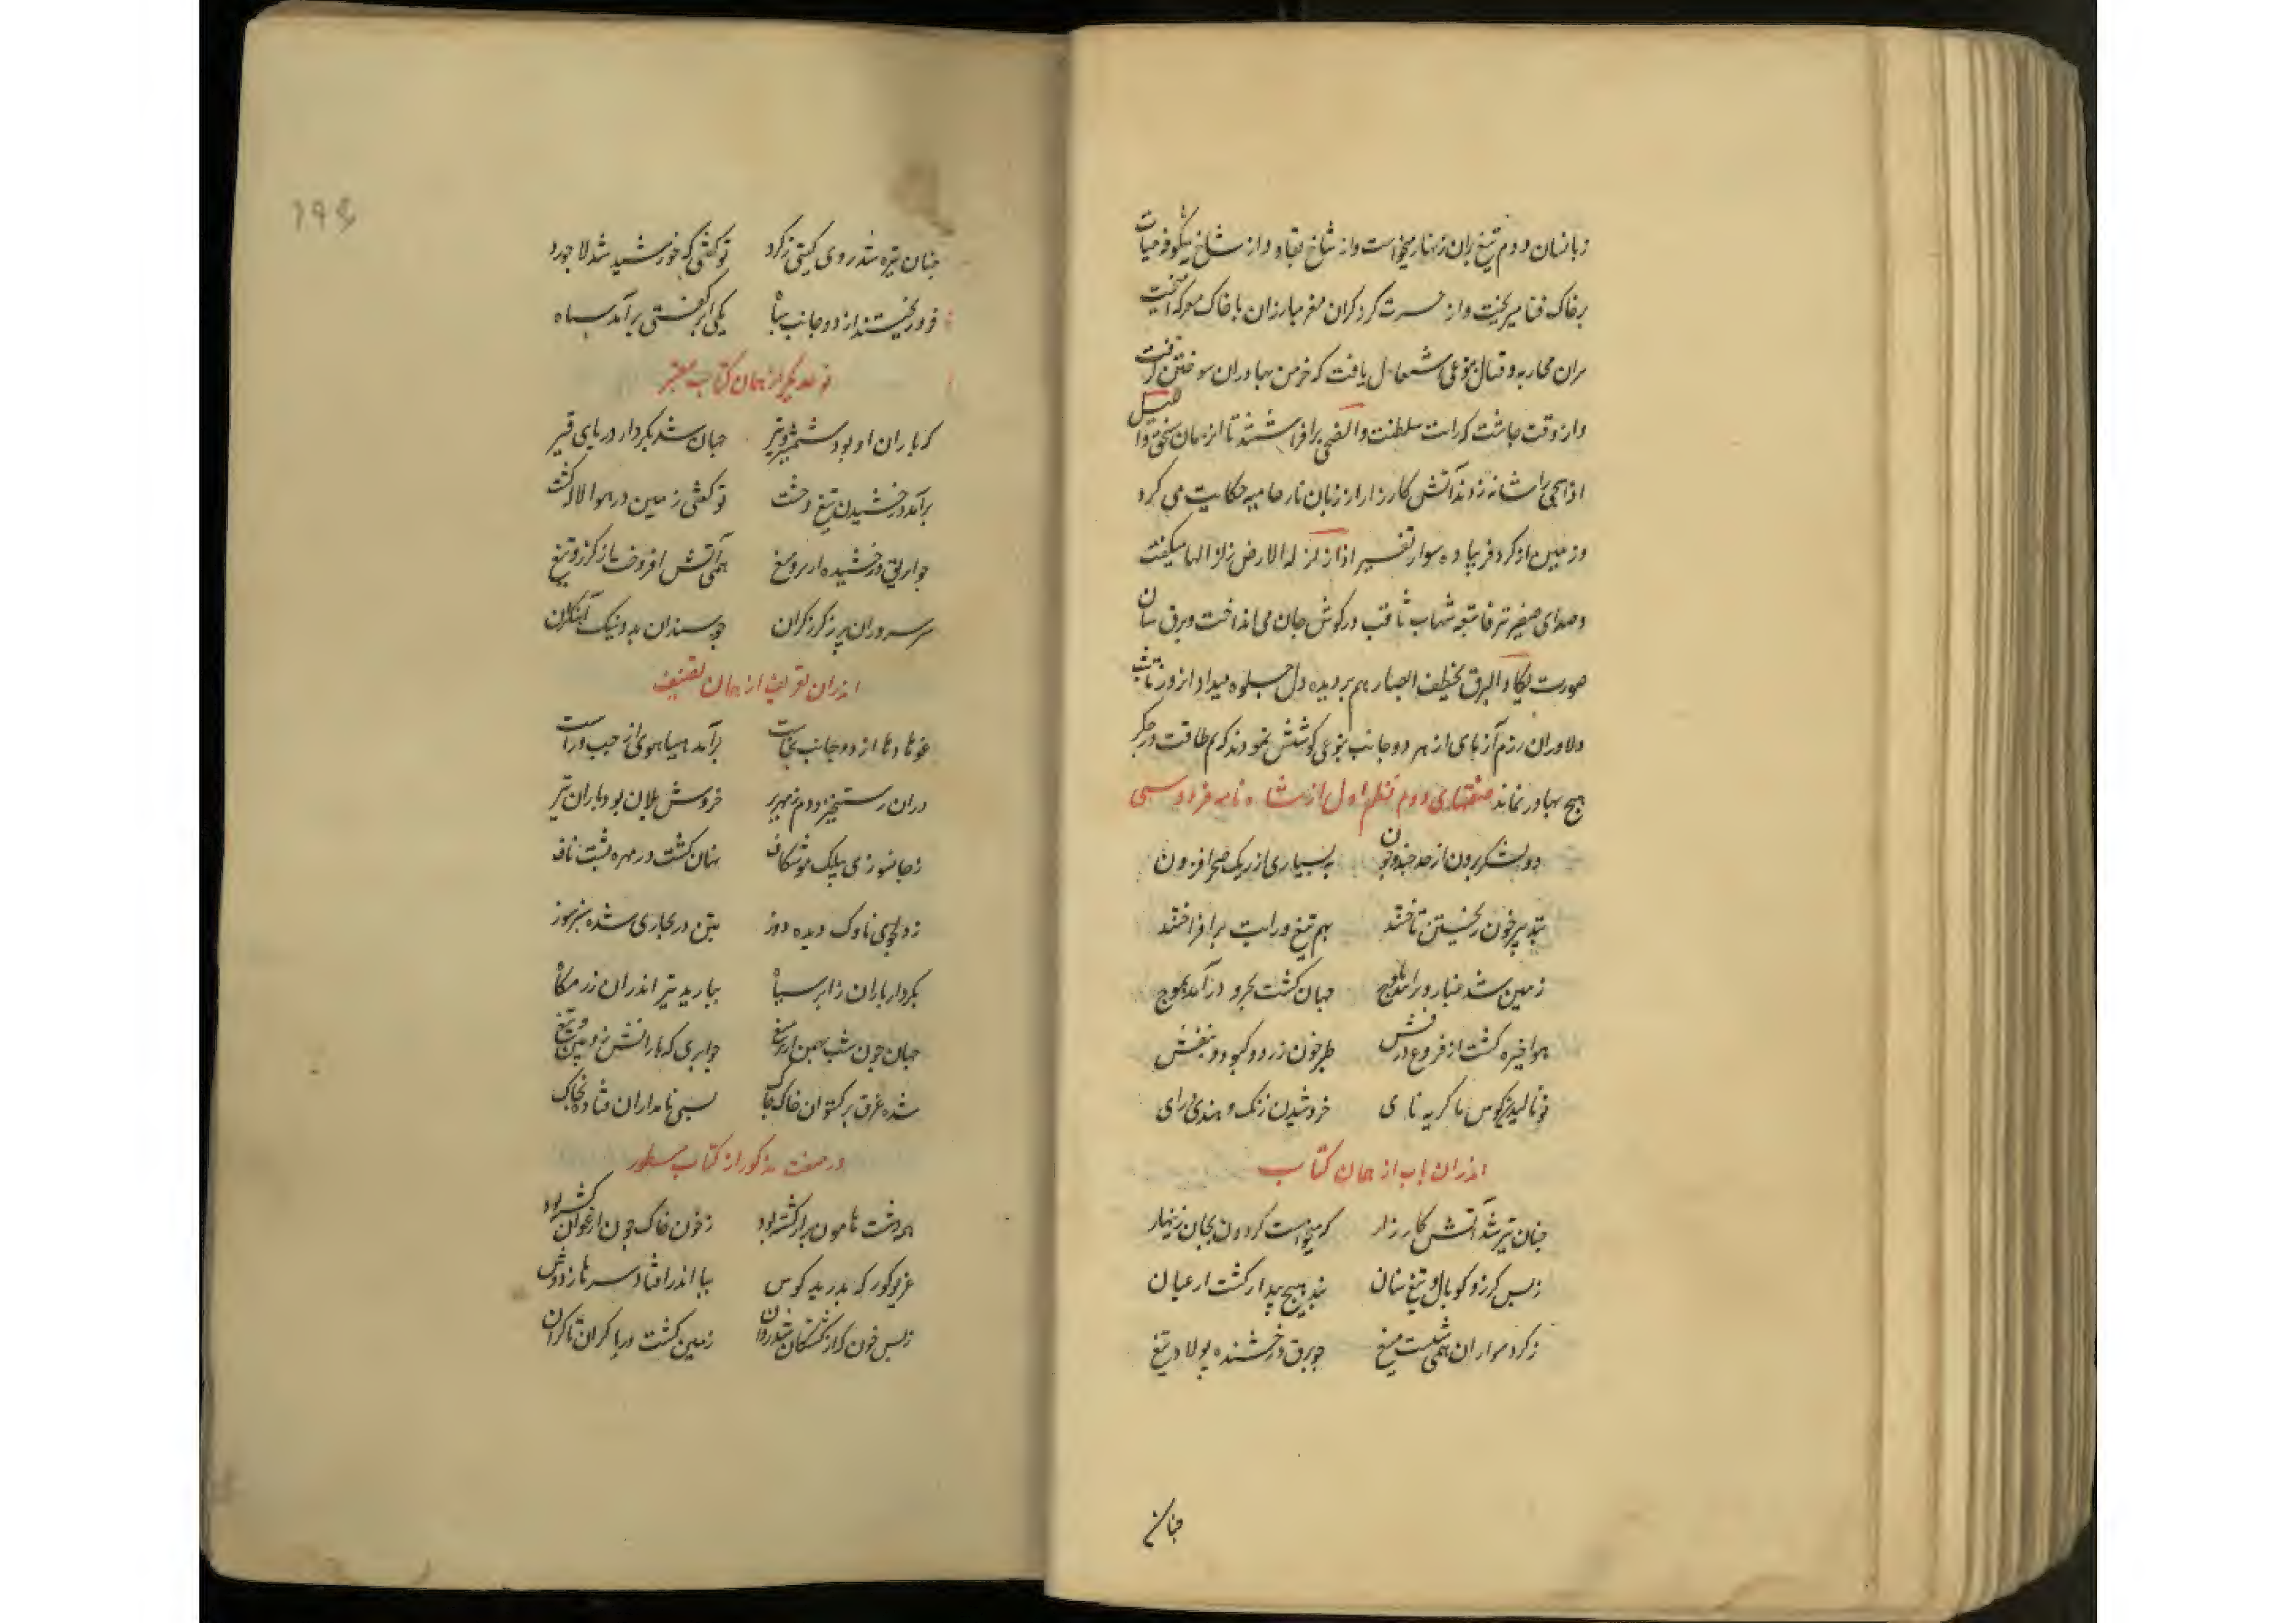 زبانسان دودم تیغ بران زنهار میخواست و از شاخ بقا و از شاخ شکوفه حیات
برخاک فنا میریخت و از حسرت کرد کران مغز مبارزان با خاک معرکه آمیخت
محاربه و قتال بنوعی اشتعال یافت که خرمن بهادران سوختن گرفت
و از وقت چاشت که رایت سلطنت والضحی برافراشتند تا از همان والیل
اذا سجی را شانه زدند آتش کارزار از زبان نار حامیه حکایت می کرد
و زمین از کر و فر پیاده و سوار تفسیر اذا زلزله الارض زلزالها میگفت
و صدای صفیر تیر فاتبعه شهاب ثاقب در گوش جان می انداخت و برق سنان
صورت یکاد البرق یخطف ابصارهم بر دیده دل جلوه میداد
دلاوران رزم آزمای از هر دو جانب بنوعی کوشش نمودند که هم طاقت در جگر
هیچ بهادر نماند صفتهای دوم نظم اول از شاه نامه فردوسی
دو لشکر برون از حد چند و چون به بسیاری از ریک صحرا فزون
بتدبیر خون ریختن تاختند بهم تیغ و رایت برافراختند
زمین شد غبار و برآمد باوج جهان کشت بحر و درآمد بموج
هوا خیره کشت از فروغ درفش طبر خون زرد و کبود و بنفش
نالیدن کوس با کره نای خروشیدن زنک و هندی درای
اندران باب از همان کتاب
جنان تیز شد آتش کارزار که میخواست کردون بجان زینهار
زبس کرز و کوپال و تیغ و سنان نبد هیچ پیدا رکیب از عنان
ز کرد سواران همی بست میغ چو برق درخشنده پولاد تیغ
جنان
۱۹۴
جنان تیره شد روی کیتی ز کرد تو کفتی که خورشید شد لاجورد
فرو ریختند از دو جانب سپاه یکی ابر کفتی برآمد سیاه
نوعدیکر از همان کتاب معتبر
که باران او بود شمشیر و تیر جهان شد بکردار دریای قیر
برآمد درخشیدن تیغ و خشت تو کفتی زمین در هوا لاله کشت
چو برق درخشیده از تیره میغ همی آتش افروخت از کرز و تیغ
سر سروران زیر کرز کران چو سندان بد و پتک آهنکران
اندران تعریف از همان تصنیف
غوها و ها از دو جانب بخاست برآمد هیاهوی از چپ و راست
دران رستخیز و دم زمهریر خروش یلان بود و باران تیر
زجانسوزی بیلک موشکاف نهان کشت در مهره پشت ناف
ز دلجوی ناوک دیده دوز بتن در مجاری شده
بکردار باران ز ابر سیاه ببارید تیر اندران رزمکاه
جهان چون شب بهمن از تیره میغ چو ابری که بارانش زوبین و تیغ
شده غرق برکستوان خاک چاک بسی نامداران فتاده بخاک
در صفت مذکور از کتاب مسطور
همه دشت هامون پر از کشته بود ز خون خاک چون ارغوان کشته بود
غریو کوره که بدرید کوس بپا اندر افتاد سرها ز دوش
زبس خون که از کشتکان شد روان زمین کشت دریا کران تا کران